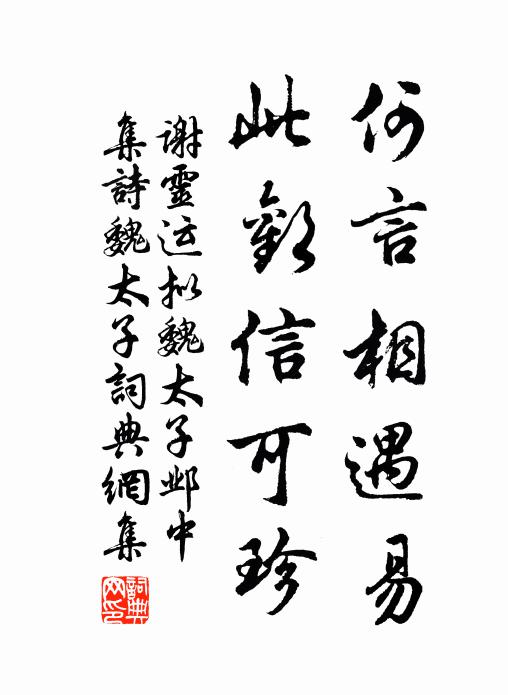 何言相遇易
此歡信可珍
谢靈运拟魏太子邺中
集詩魏太子詞典網集
詞典網印